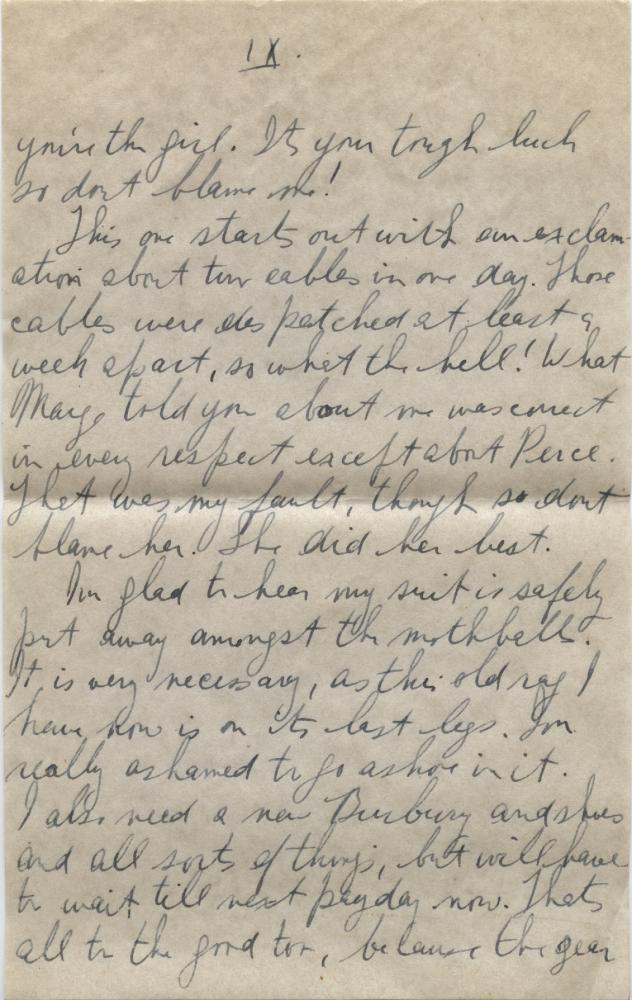 IX.
you're the girl. Its your tough luck
so dont blame me!
This one starts out with an exclam-
ation about two cables in one day. Those
cables were despatched at least a
week apart, so what the hell! What
Marge told you about me was correct
in every respect except about Perce.
That was my fault, though so dont
blame her. She did her best.
Im glad to hear my suit is safely
put away amongst the mothballs.
It is very necessary, as this old rag I
have now is on its last legs. Im
really ashamed to go ashore in it.
I also need a new Burbury and shoes
and all sorts of things, but will have
to wait till next payday now. Thats
all to the good too, because the gear